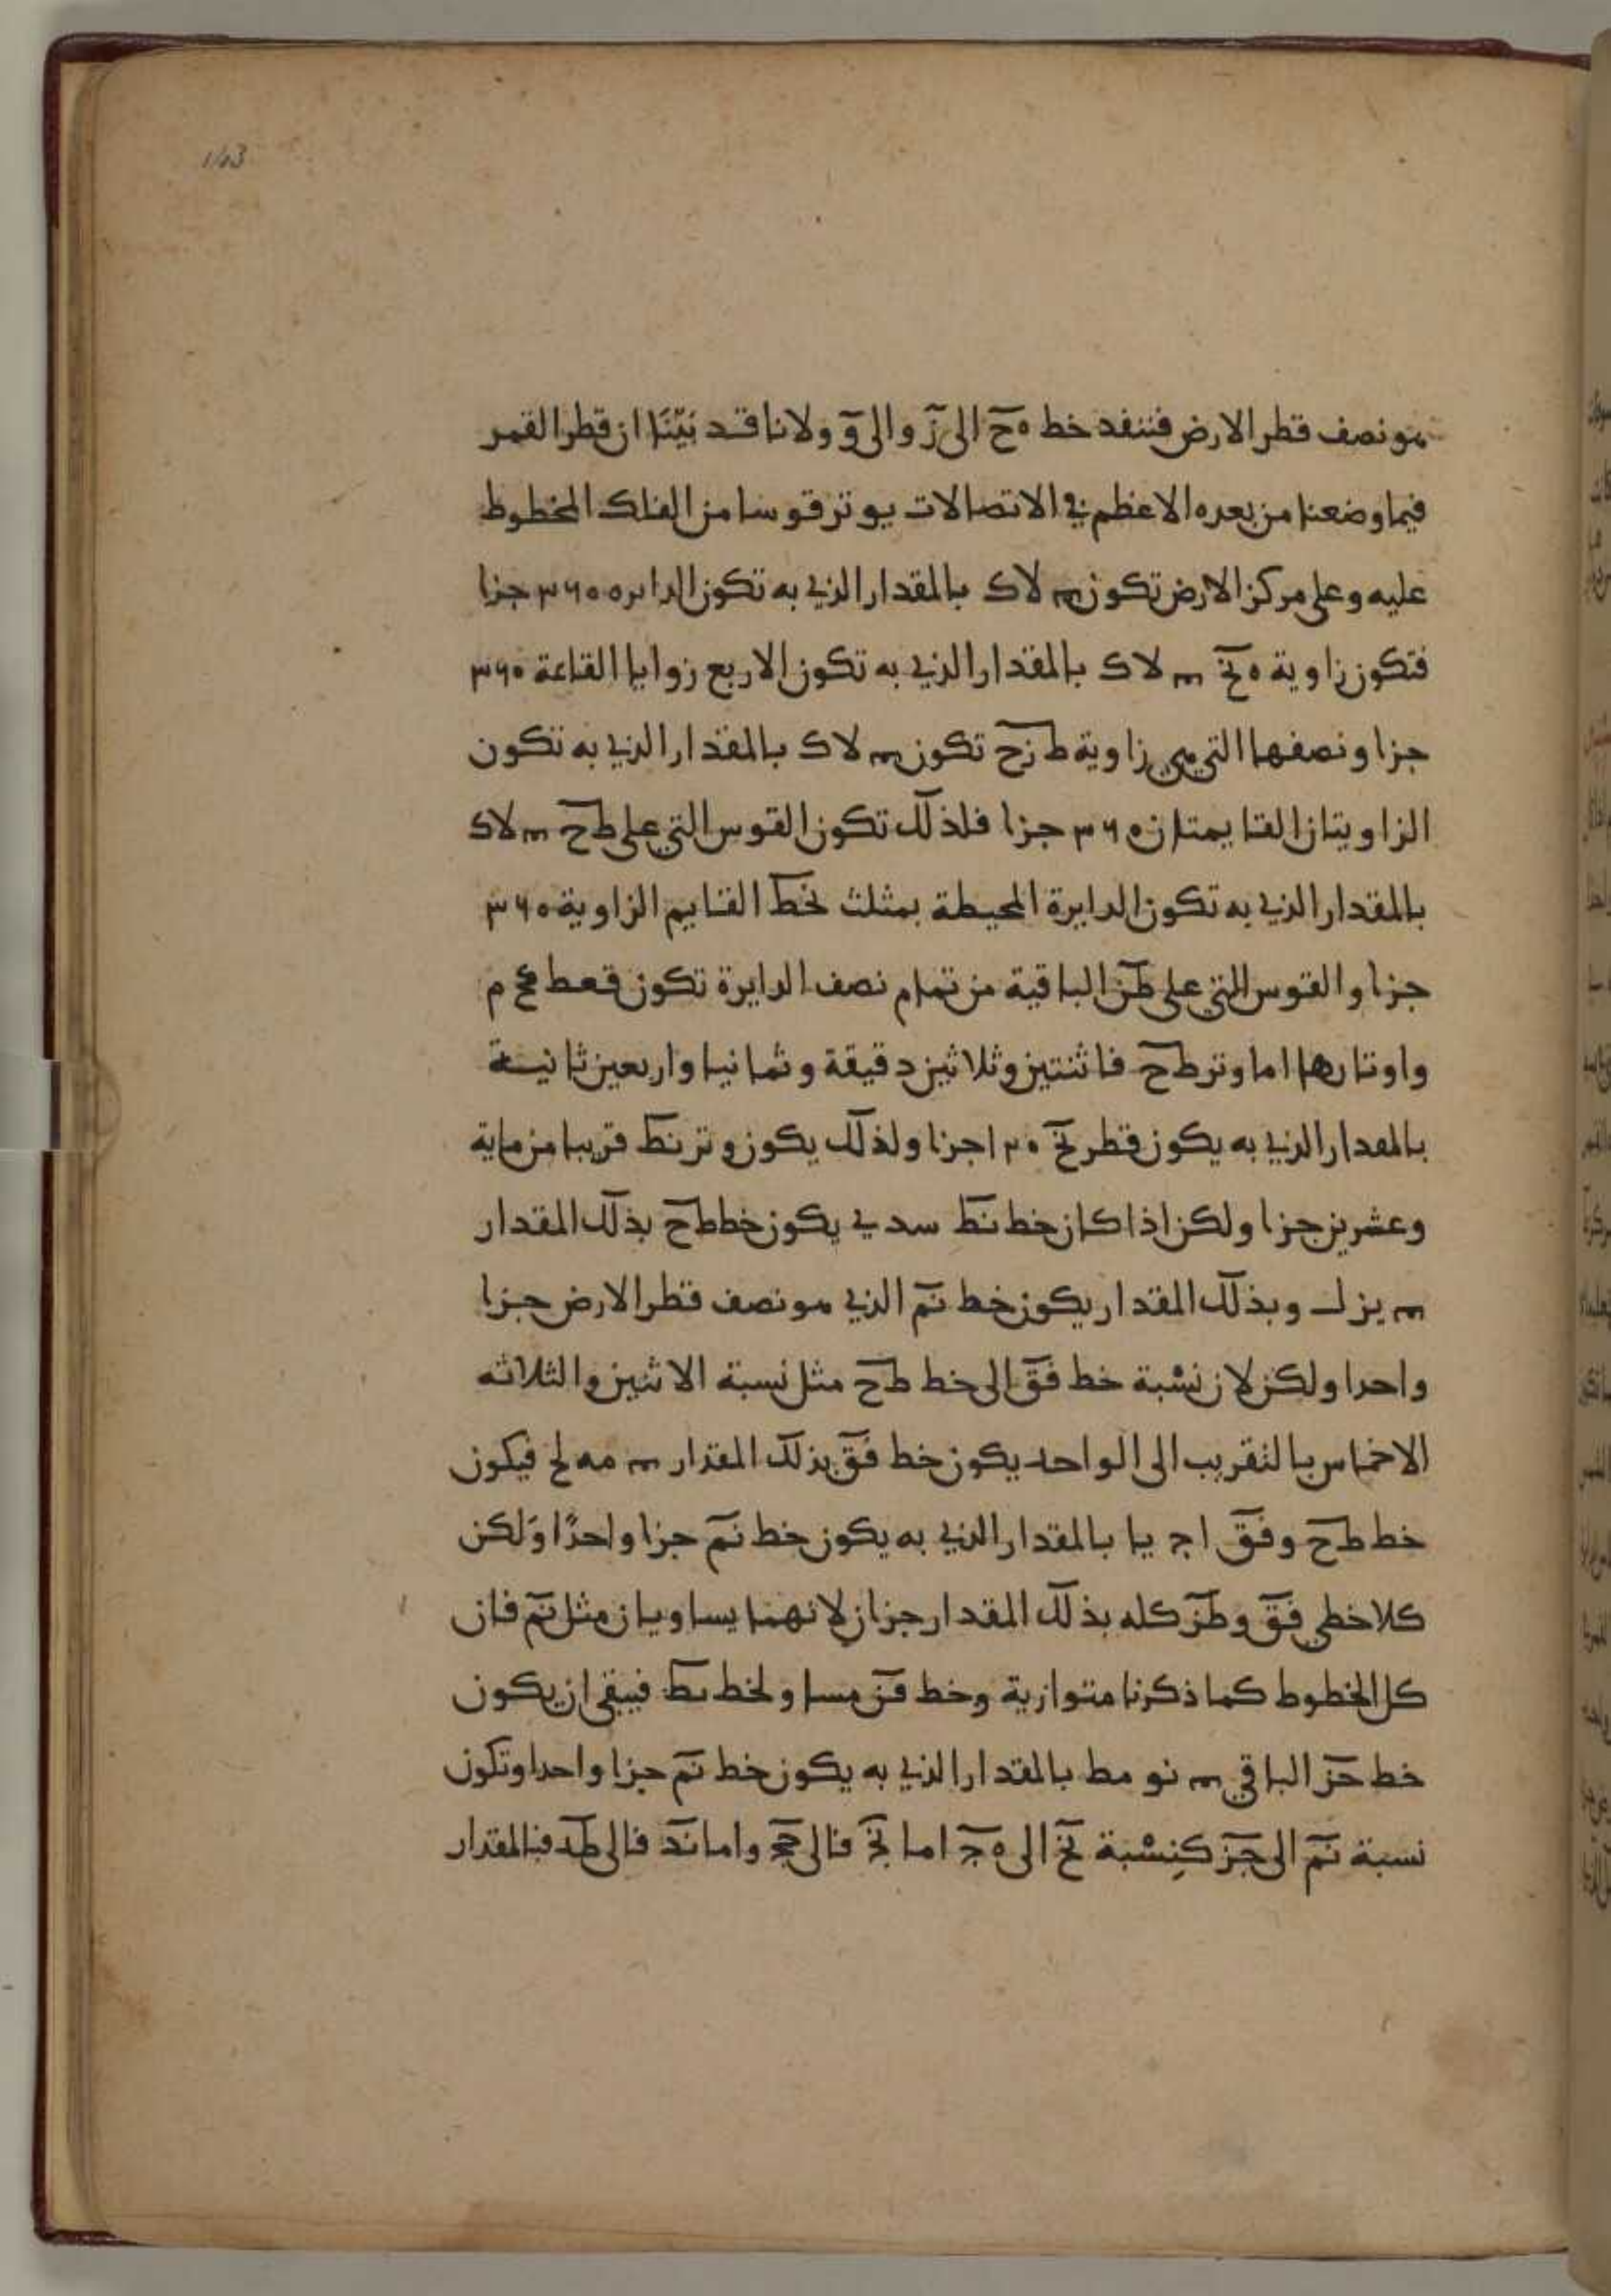 1/03
هو نصف قطر الارض فتنفد خط ه ح الى ز والى و ولانا قد بَيّنّا ان قطر القمر
فيما وضعنا من بعده الاعظم في الاتصالات يوتر قوسا من الفلك المخطوط
عليه وعلى مركز الارض تكون لا ك بالمقدار الذي به تكون الدايره ٣٦٠ جزا
فتكون زاوية ه نح لا ك بالمقدار الذي به تكون الاربع زوايا القاعة ٣٦٠
جزا ونصفها التي هي زاوية ط نح تكون لا ك بالمقدار الذي به تكون
الزاويتان القايمتان ٣٦٠ جزا فلذلك تكون القوس التي على طح لا ك
بالمقدار الذي به تكون الدايرة المحيطة بمثلث نحط القايم الزاوية ٣٦٠
جزا والقوس التي على طن الباقية من تمام نصف الدايرة تكون قعط م
واوتارها اما وتر طح فاثنتين وثلاثين دقيقة وثمانيا واربعين ثانيسة
بالمعدار الذي به يكون قطر نح ١٢٠ جزا ولذلك يكون وتر نط قريبا من ماية
وعشرين جزا ولكن اذا كان خط نط سد ي يكون خط طح بذلك المقدار
يز ل وبذلك المقدار يكون خط نم الذي هو نصف قطر الارض جزا
واحدا ولكن لان نسْبة خط فق الى خط طح مثل نسبة الاثنين والثلاثه
الاخماس بالتقريب الى الواحد يكون خط فق بذلك المقدار مه لح فيكون
خط طح وفق ا ج يا بالمقدار الذي به يكون خط نم جزا واحدًا وَلكن
كلا خطي فق وطز كله بذلك المقدار جزان لانهما يساويان مثل نم فان
كل الخطوط كما ذكرنا متوازية وخط قن مساو لخط نط فيبقى ان يكون
خط حز الباقي نو مط بالمقدار الذي به يكون خط نم جزا واحدا وتكون
نسبة نم الى حز كنِسْبة نج الى ه ج اما نج فالى حج واما ند فالى طد فبالمقدار